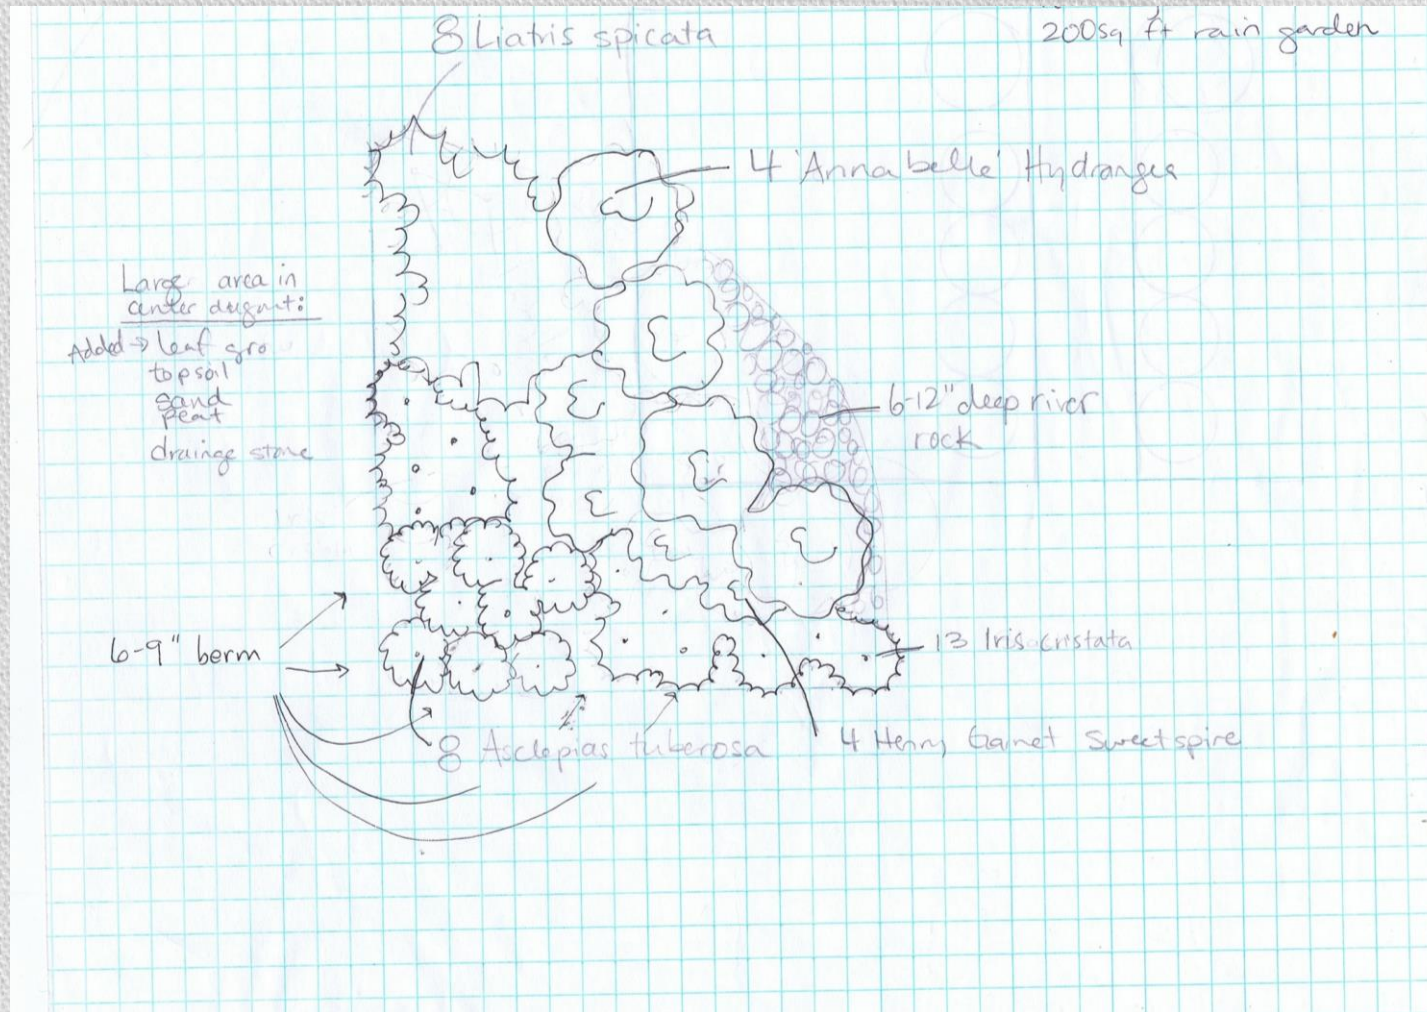 8 Liatris spicata
200sq ft rain garden
4 'Annabelle' Hydrangea
Large area in
center dugout:
Added → leaf gro
topsoil
sand
peat
drainge stone
6-12" deep river
rock
6-9" berm
13 Iris cristata
8 Asclepias tuberosa
4 Henry Garnet Sweetspire